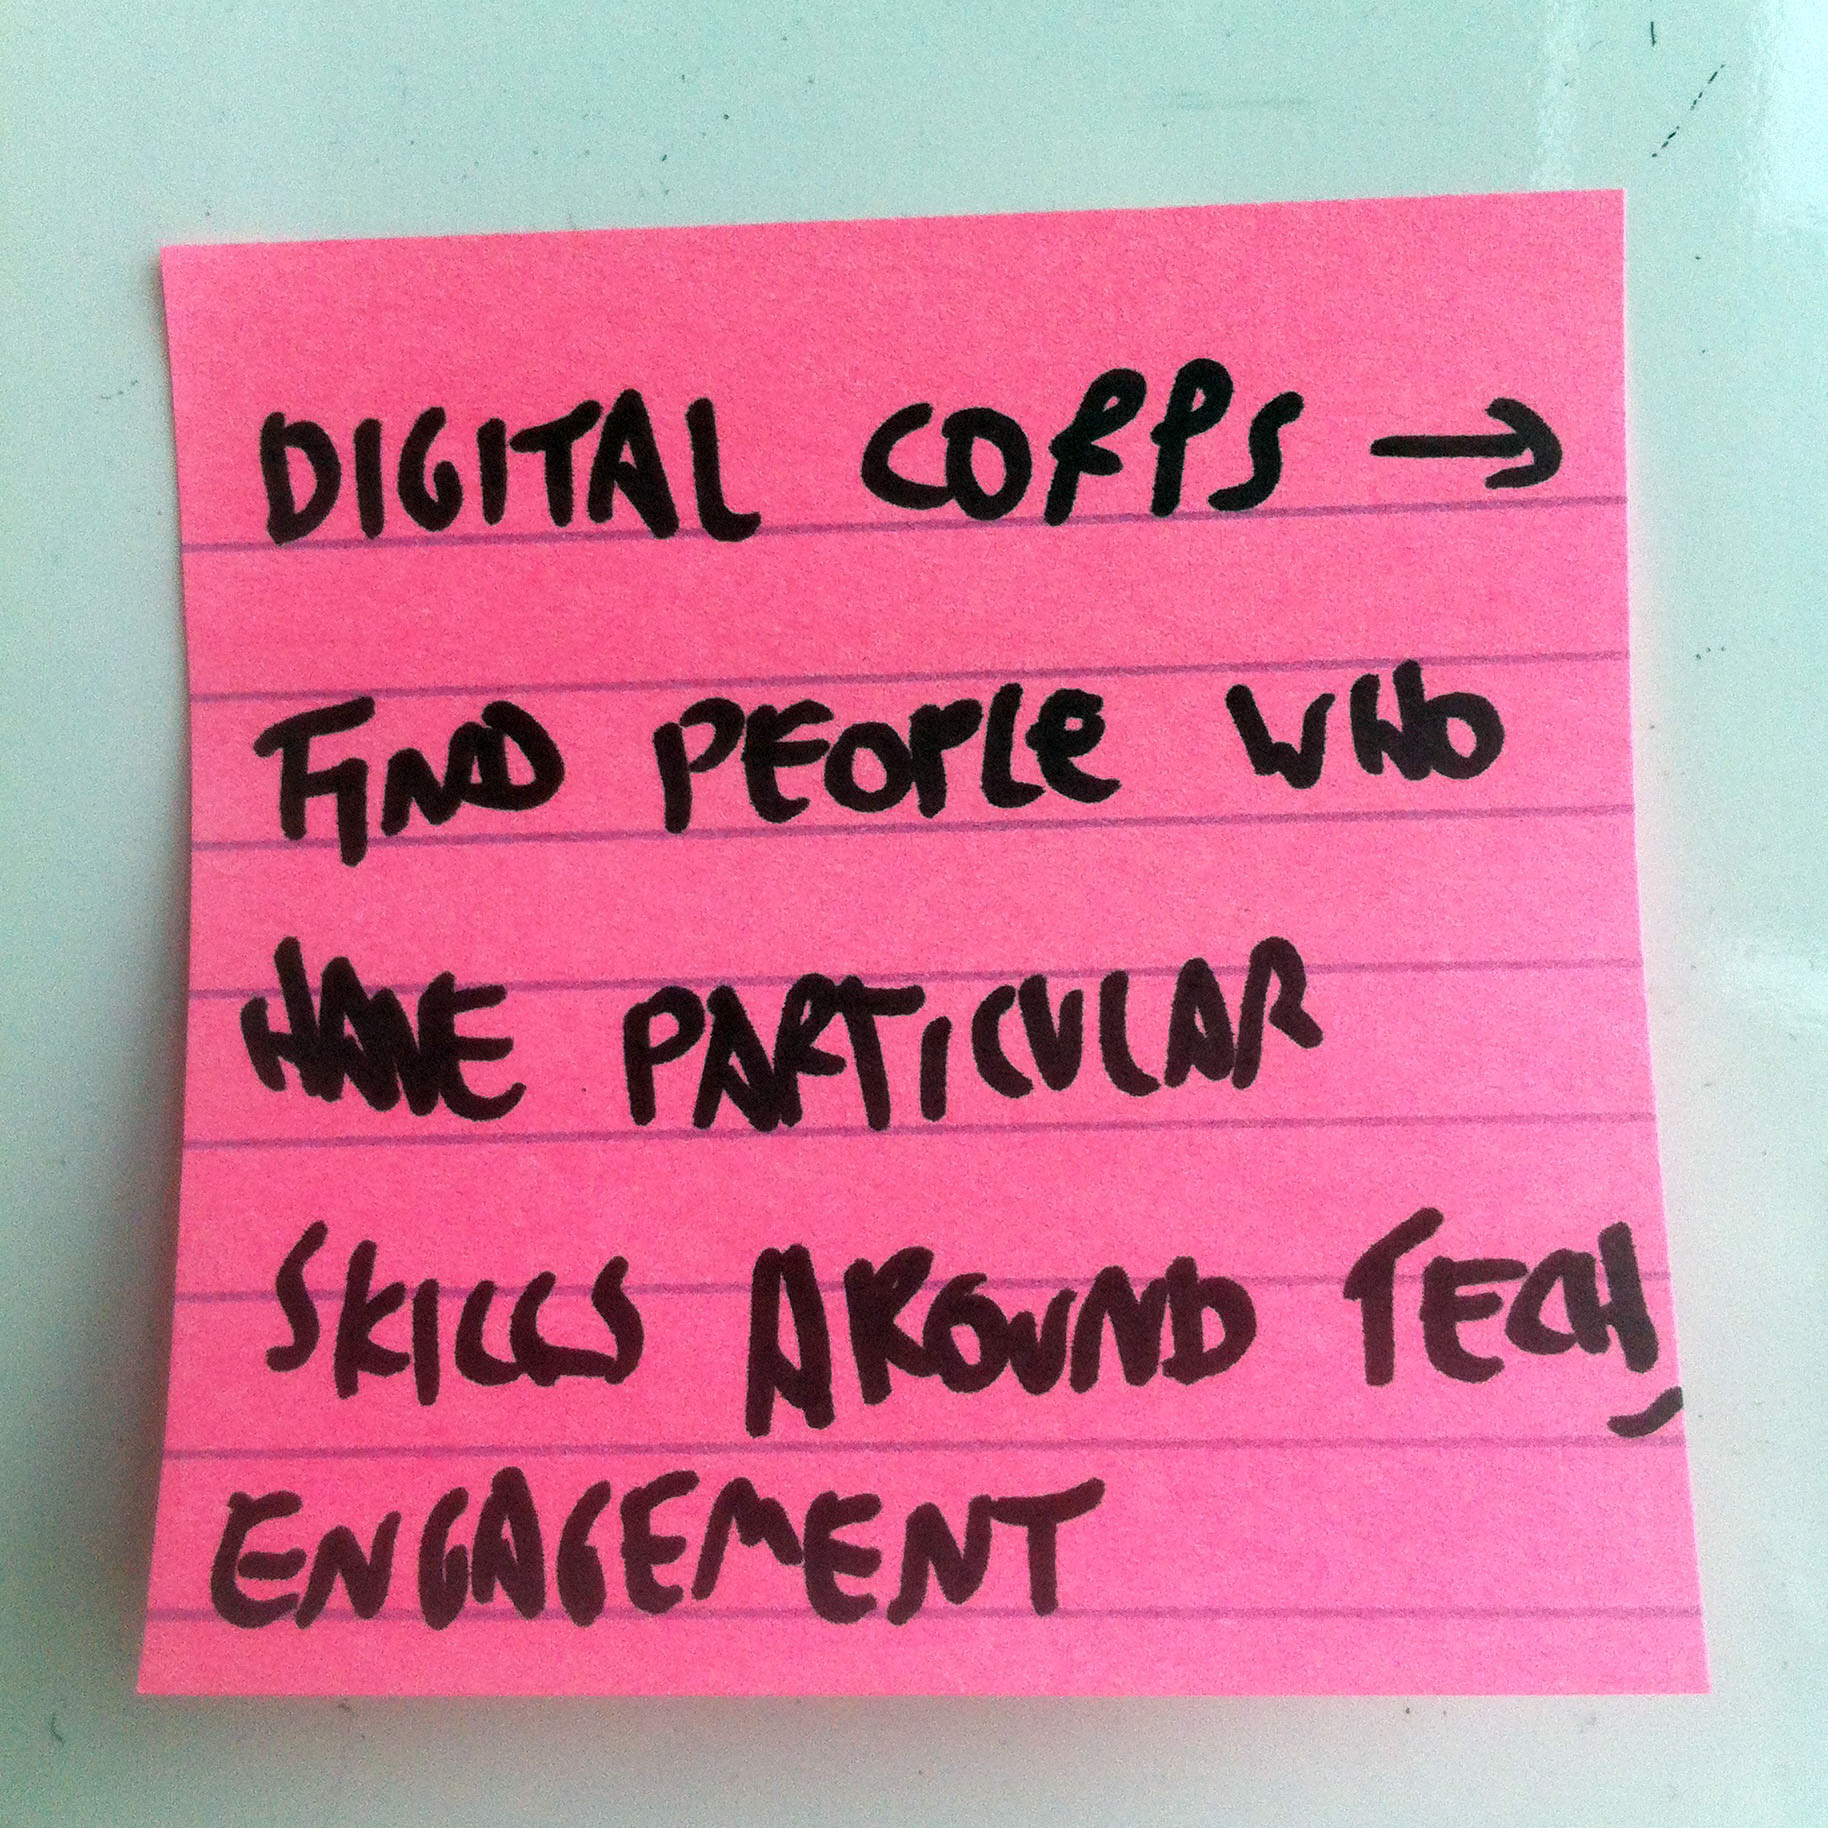 DIGITAL CORPS →
FIND PEOPLE WHO
HAVE PARTICULAR
SKILLS AROUND TECH
ENGAGEMENT